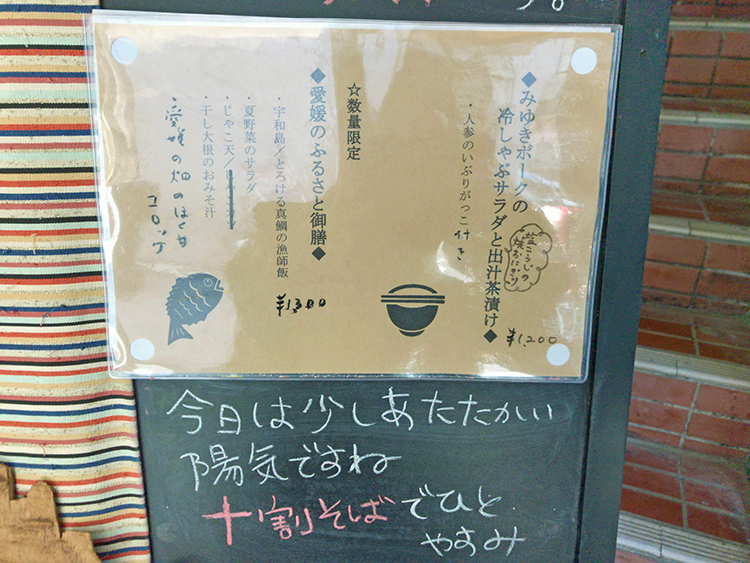 ◆みゆきポークの
冷しゃぶサラダと出汁茶漬け◆
塩こうじの
焼おにぎり
¥1,200
・人参のいぶりがっこ付き
☆数量限定
◆愛媛のふるさと御膳◆
・宇和島／とろける真鯛の漁師飯
¥1,300
・夏野菜のサラダ
・じゃこ天／
・干し大根のおみそ汁
・愛媛の畑のほくほく
コロッケ
今日は少しあたたかい
陽気ですね
十割そばでひと
やすみ